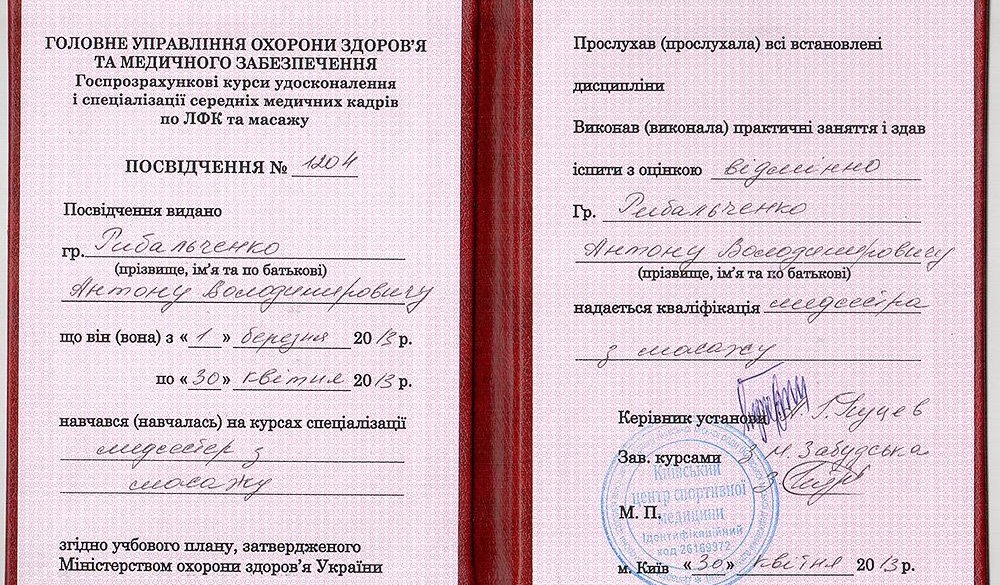 ГОЛОВНЕ УПРАВЛІННЯ ОХОРОНИ ЗДОРОВ'Я
ТА МЕДИЧНОГО ЗАБЕЗПЕЧЕННЯ
Госпрозрахункові курси удосконалення
і спеціалізації середніх медичних кадрів
по ЛФК та масажу
ПОСВІДЧЕННЯ № 1204
Посвідчення видано
гр. Рибальченко
(прізвище, ім'я та по батькові)
Антону Володимировичу
що він (вона) з «1» березня 2013 р.
по «30» квітня 2013 р.
навчався (навчалась) на курсах спеціалізації
медсестер з
масажу
згідно учбового плану, затвердженого
Міністерством охорони здоров'я України
Прослухав (прослухала) всі встановлені
дисципліни
Виконав (виконала) практичні заняття і здав
іспити з оцінкою відмінно
Гр. Рибальченко
Антону Володимировичу
(прізвище, ім'я та по батькові)
надається кваліфікація медсестра
з масажу
Керівник установи
Зав. курсами З. М. Забудська
М. П.
м. Київ «30» квітня 2013 р.
Київський
центр спортивної
медицини
Ідентифікаційний
код 26189972